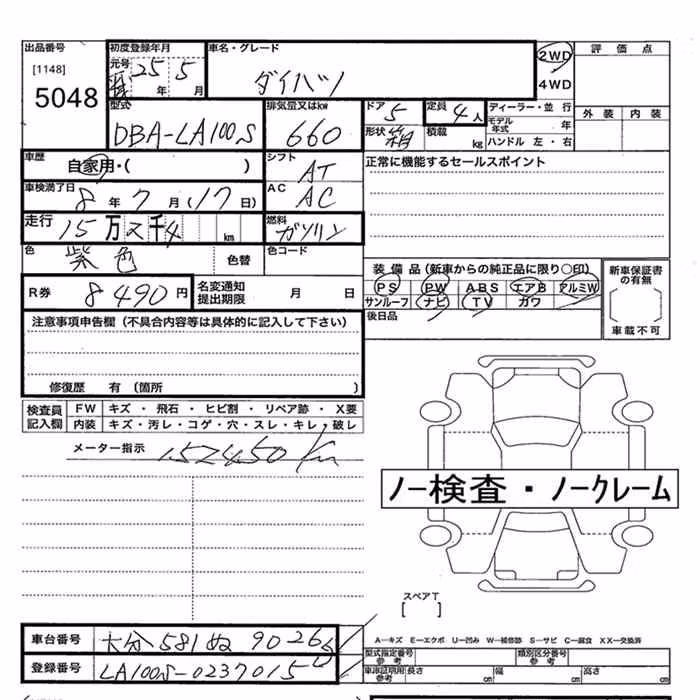 出品番号
[1148]
5048
初度登録年月
元号 25 年 5 月
車名・グレード
ダイハツ
2WD
4WD
評価点
外装 内装
型式
DBA-LA100S
排気量又はkw
660
ドア 5
形状 箱
定員 4人
積載 kg
ディーラー・並行
モデル年式 年
ハンドル 左・右
車歴
自家用・( )
シフト
AT
正常に機能するセールスポイント
車検満了日
8年7月(17日)
AC
AC
走行
15万2千4 km
燃料
ガソリン
色
紫色
色替
色コード
装備品(新車からの純正品に限り○印)
PS PW ABS エアB アルミW
サンルーフ ナビ TV カワ
新車保証書の有無
車載不可
R券
8490円
名変通知提出期限 月 日
後日品
注意事項申告欄(不具合内容等は具体的に記入して下さい)
修復歴 有(箇所 )
検査員記入欄
FW キズ・飛石・ヒビ割・リペア跡・X要
内装 キズ・汚レ・コゲ・穴・スレ・キレ・破レ
メーター指示
152450km
ノー検査・ノークレーム
スペアT
[ ]
車台番号 大分581ぬ9026
登録番号 LA100S-0237015
A―キズ E―エクボ U―凹み W―補修跡 S―サビ C―腐食 XX―交換済
型式指定番号 参考
類別区分番号 参考
車庫証明用 参考 長さ cm 幅 cm 高さ cm